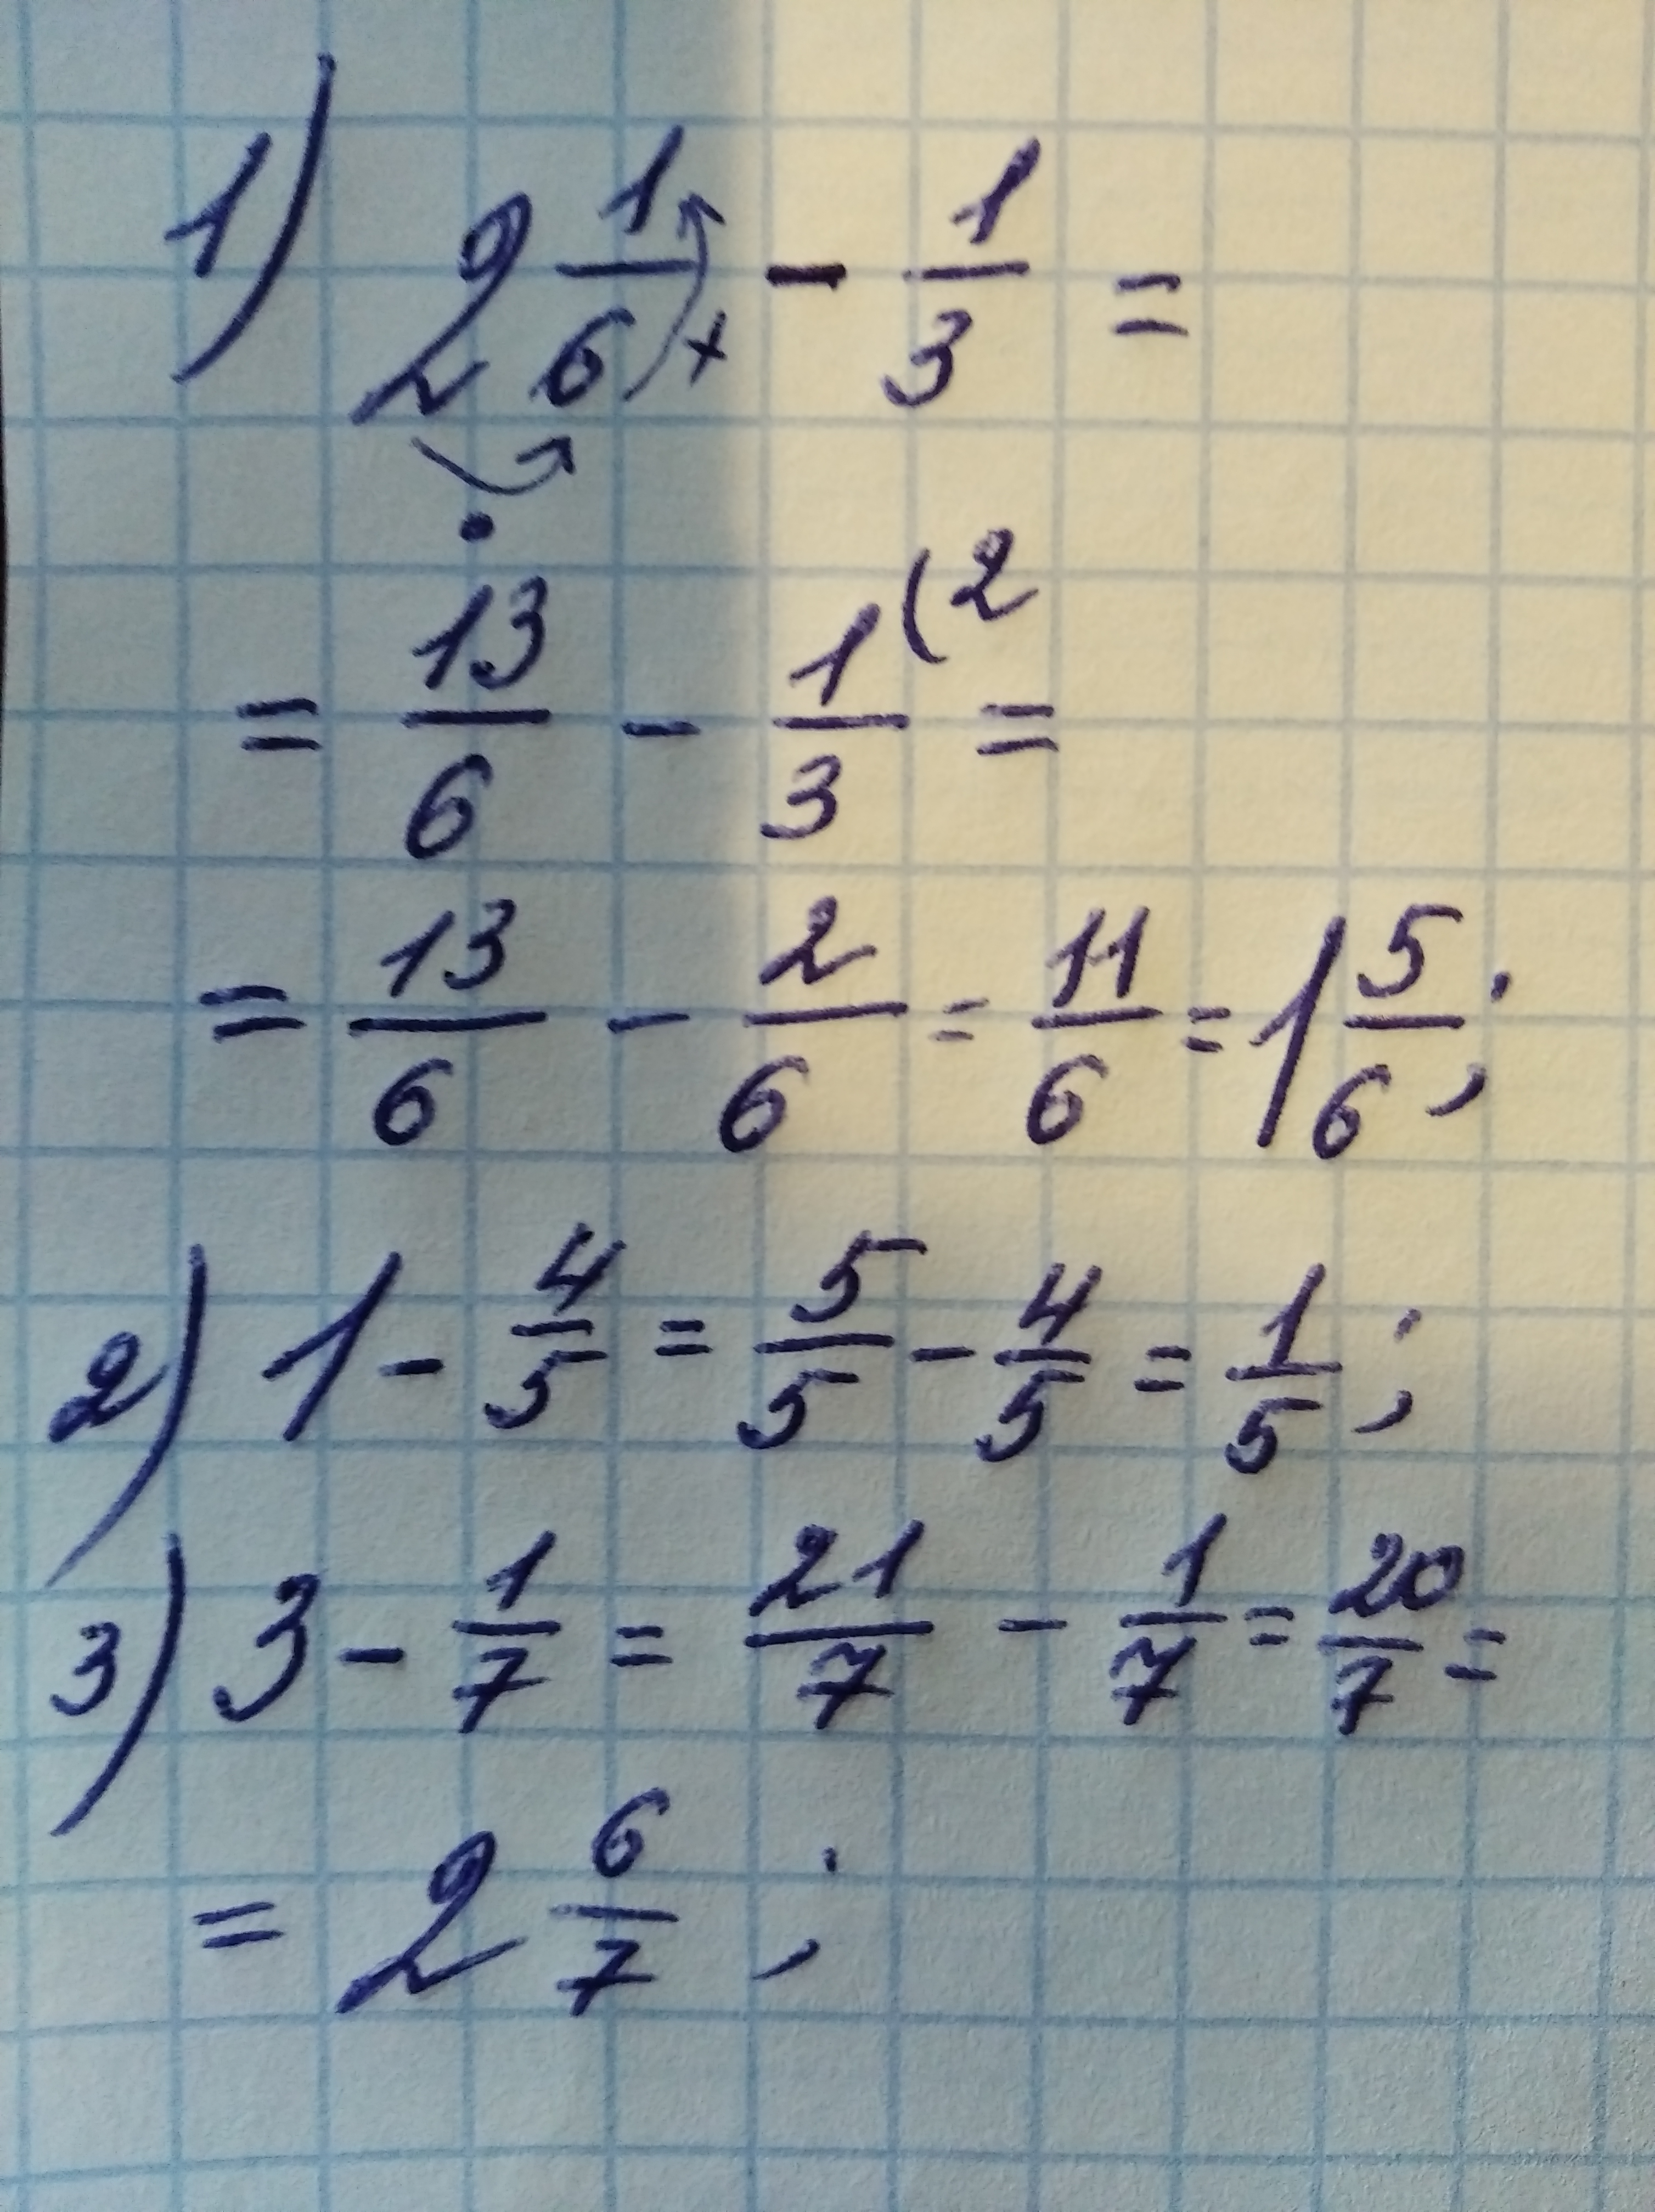 1) 2 1/6 - 1/3 =
= 13/6 - 1/3 (2 =
= 13/6 - 2/6 = 11/6 = 1 5/6;
2) 1 - 4/5 = 5/5 - 4/5 = 1/5;
3) 3 - 1/7 = 21/7 - 1/7 = 20/7 =
= 2 6/7;